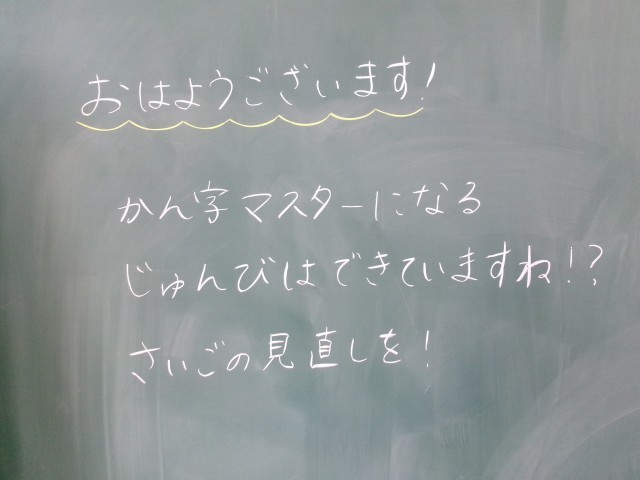 おはようございます!
かん字マスターになる
じゅんびはできていますね!?
さいごの見直しを!